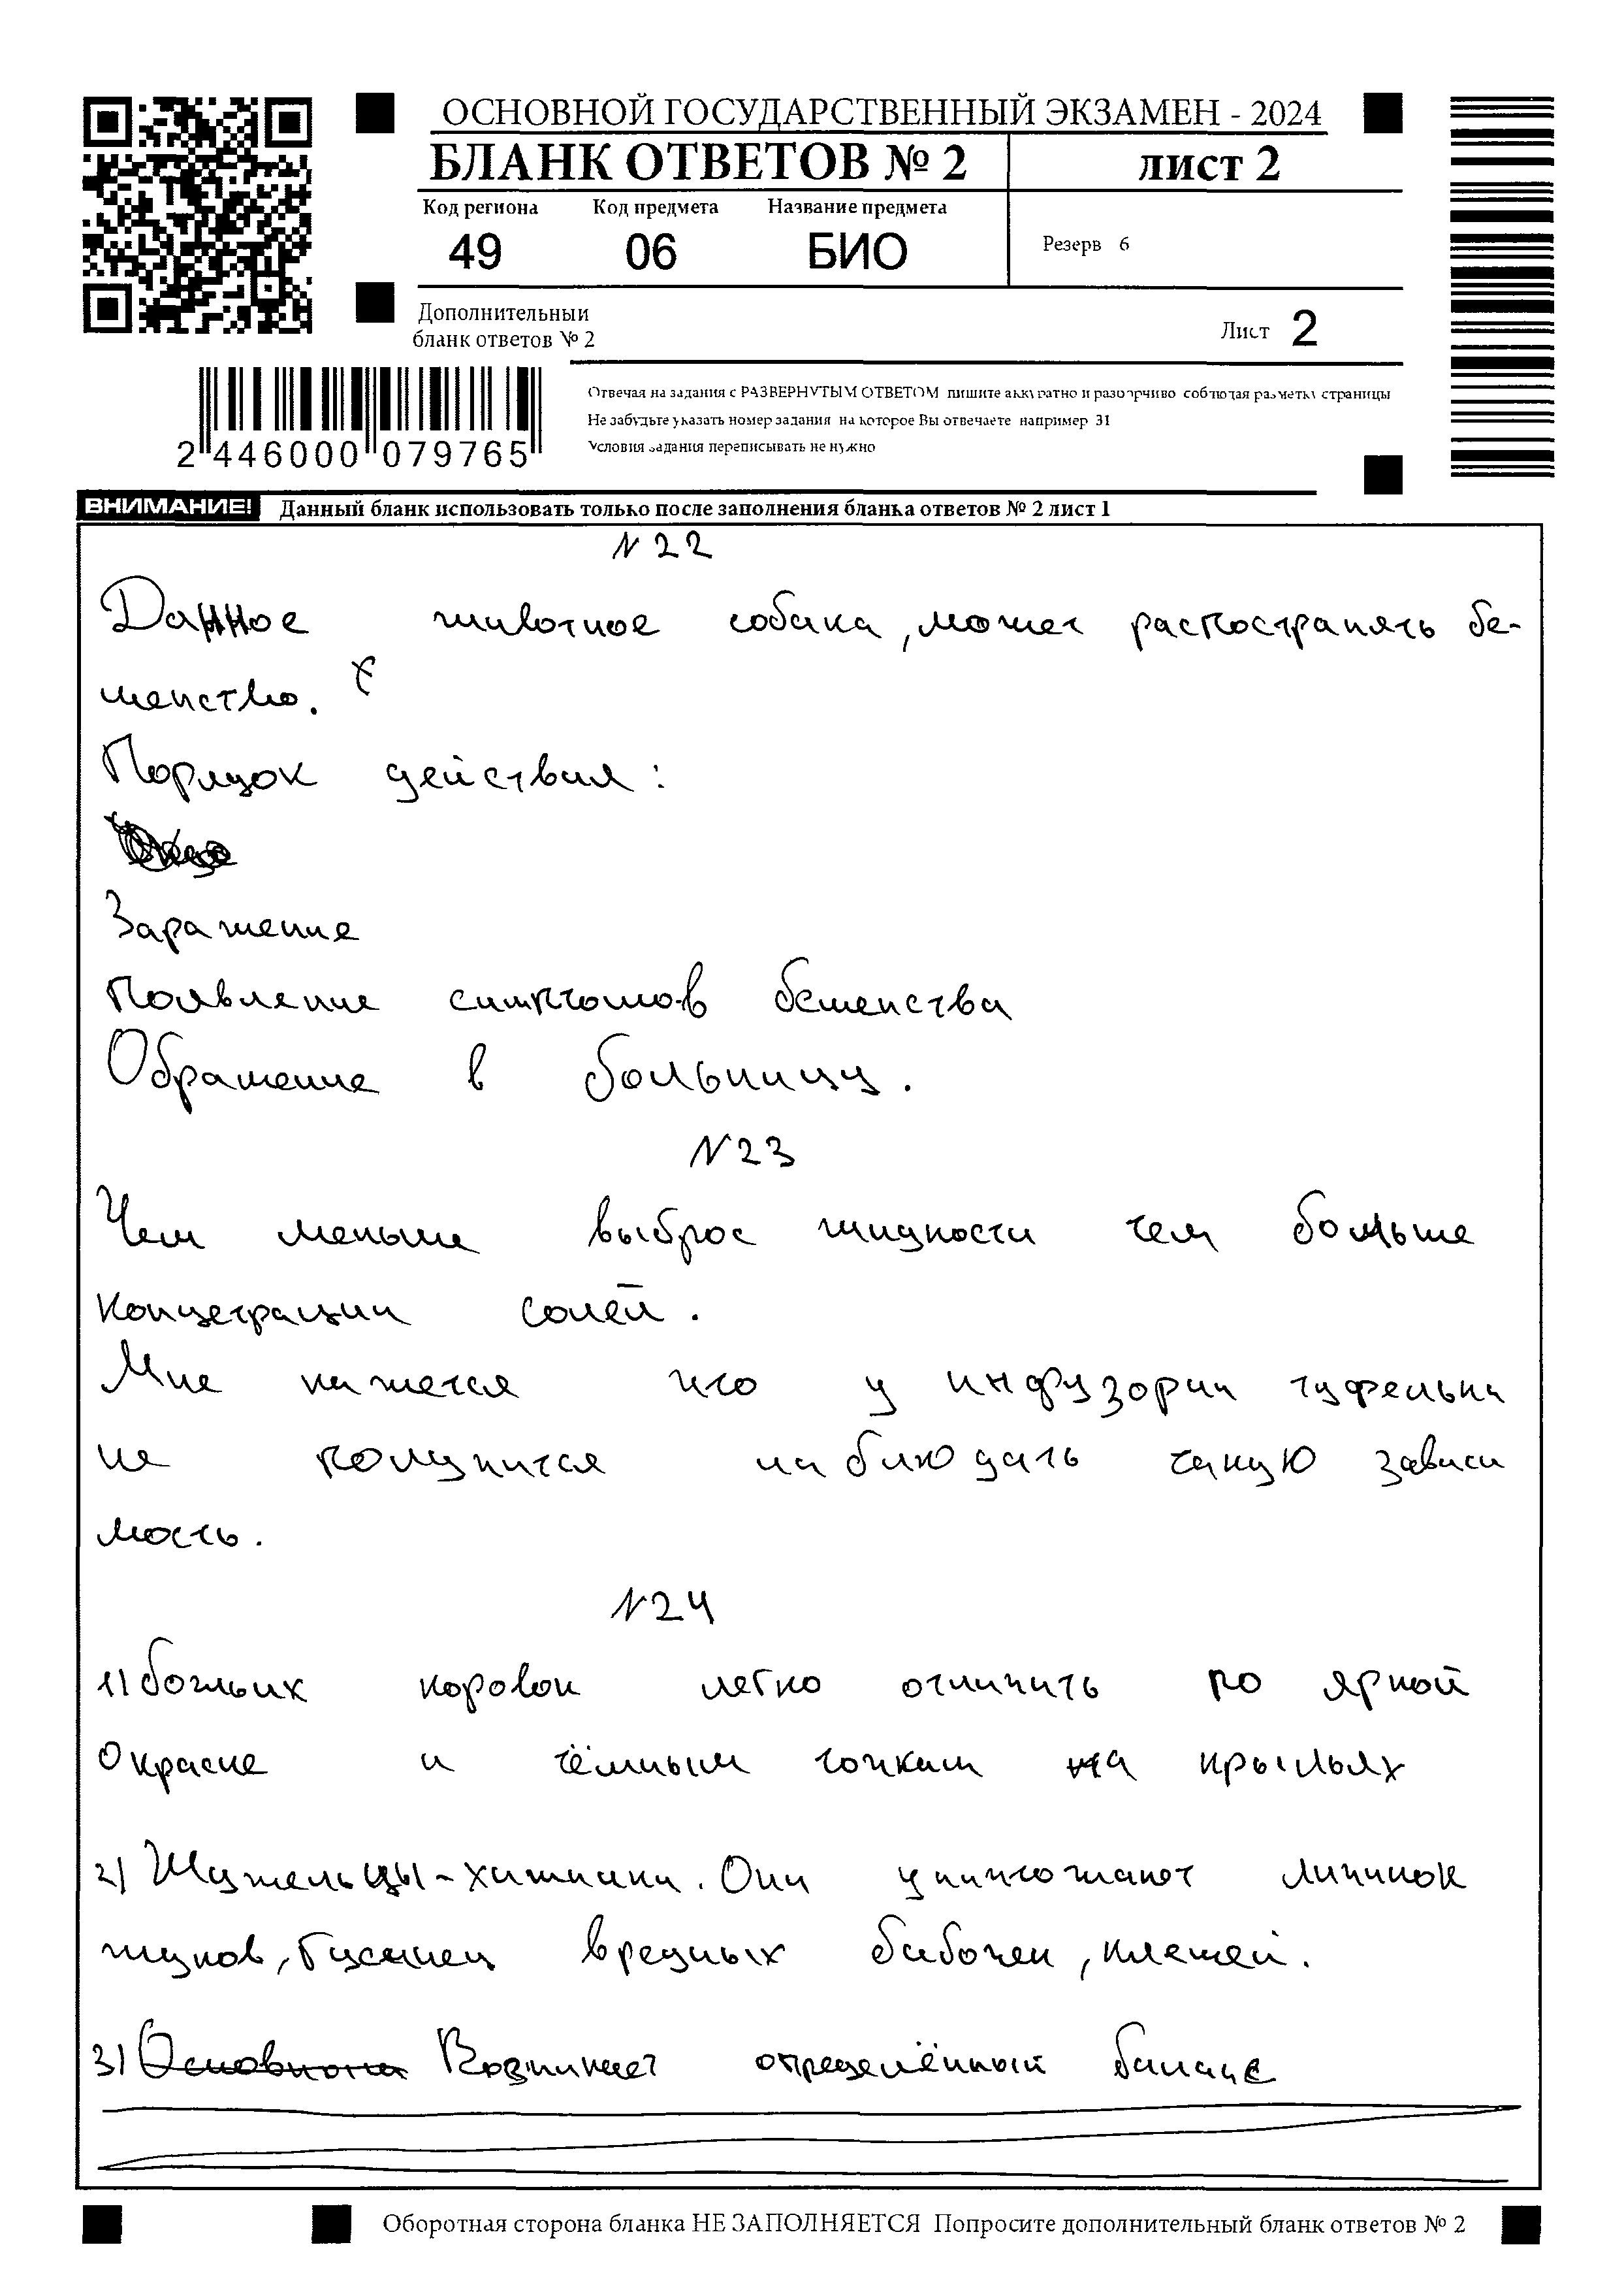 ОСНОВНОЙ ГОСУДАРСТВЕННЫЙ ЭКЗАМЕН - 2024
БЛАНК ОТВЕТОВ № 2
лист 2
Код региона Код предмета Название предмета
49 06 БИО
Резерв 6
Дополнительный
бланк ответов № 2
Лист 2
Отвечая на задания с РАЗВЕРНУТЫМ ОТВЕТОМ пишите аккуратно и разборчиво соблюдая разметку страницы
Не забудьте указать номер задания на которое Вы отвечаете например 31
Условия задания переписывать не нужно
2 446000 079765
ВНИМАНИЕ! Данный бланк использовать только после заполнения бланка ответов № 2 лист 1
№22
Данное животное собака, может распостранять бе-
шенство.
Порядок действия:
Заражение
Появление симптомов бешенства
Обращение в больницу.
№23
Чем меньше выброс жидкости тем больше
концетрации солей.
Мне кажется что у инфузории туфельки
не получится наблюдать такую зависи
мость.
№24
1) божьих коровок легко отличить по яркой
окраске и тёмным точкам на крыльях
2) Жужельцы-хищники. Они уничтожают личинок
жуков, гусениц вредных бабочек, клещей.
3) Основном Возникает определённый баланс
Оборотная сторона бланка НЕ ЗАПОЛНЯЕТСЯ Попросите дополнительный бланк ответов № 2